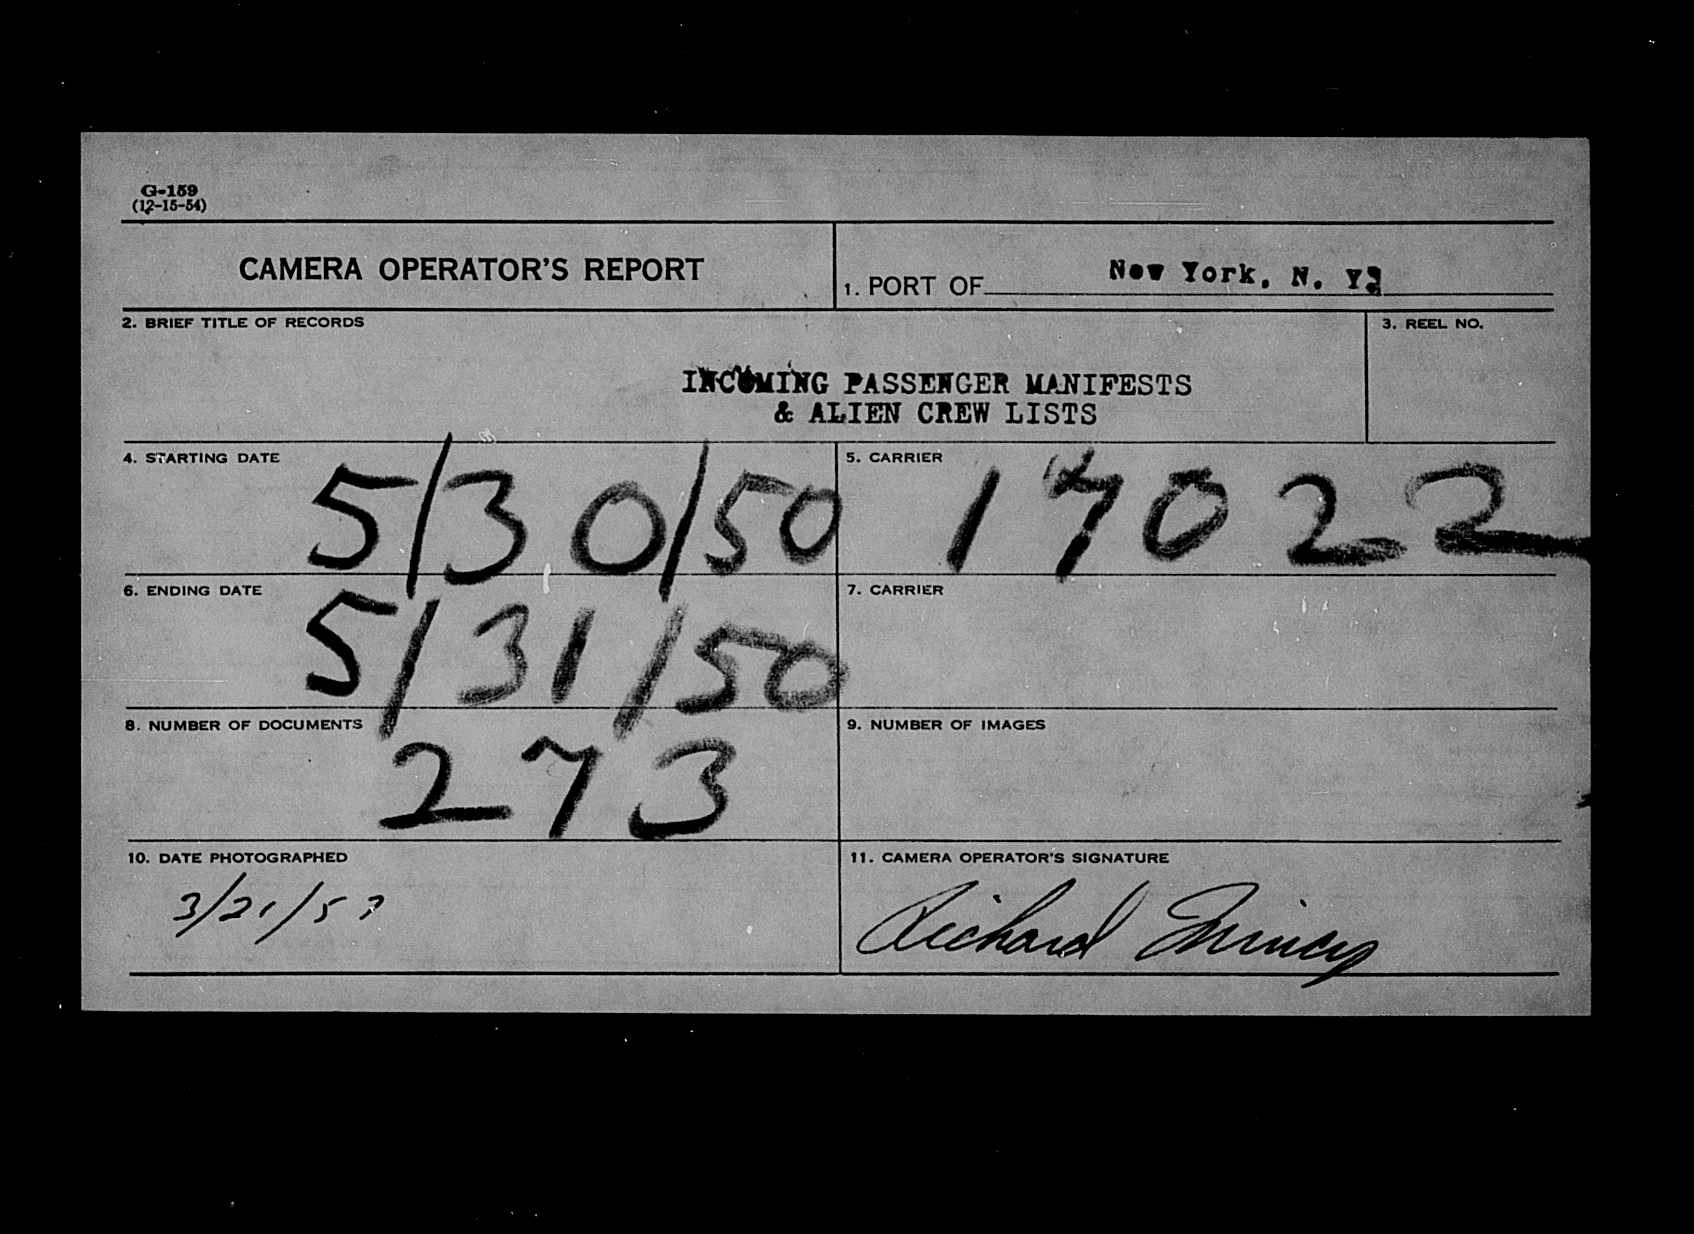 G-159
(12-15-54)
CAMERA OPERATOR'S REPORT
1. PORT OF New York, N. Y.
2. BRIEF TITLE OF RECORDS
INCOMING PASSENGER MANIFESTS
& ALIEN CREW LISTS
3. REEL NO.
4. STARTING DATE 5/30/50
5. CARRIER 17022
6. ENDING DATE 5/31/50
7. CARRIER
8. NUMBER OF DOCUMENTS 273
9. NUMBER OF IMAGES
10. DATE PHOTOGRAPHED
3/21/57
11. CAMERA OPERATOR'S SIGNATURE
Richard